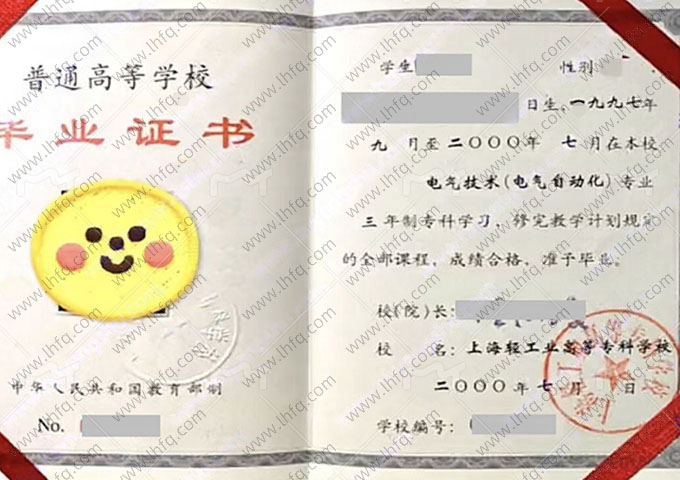 普通高等学校
毕业证书
中华人民共和国教育部制
No.
学生
性别
日生,一九九七年
九 月至二〇〇〇年 七月在本校
电气技术(电气自动化)专业
三年制专科学习,修完教学计划规定
的全部课程,成绩合格,准予毕业。
校(院)长:
校 名:上海轻工业高等专科学校
二〇〇〇年七月 日
学校编号:
www.lhfq.com